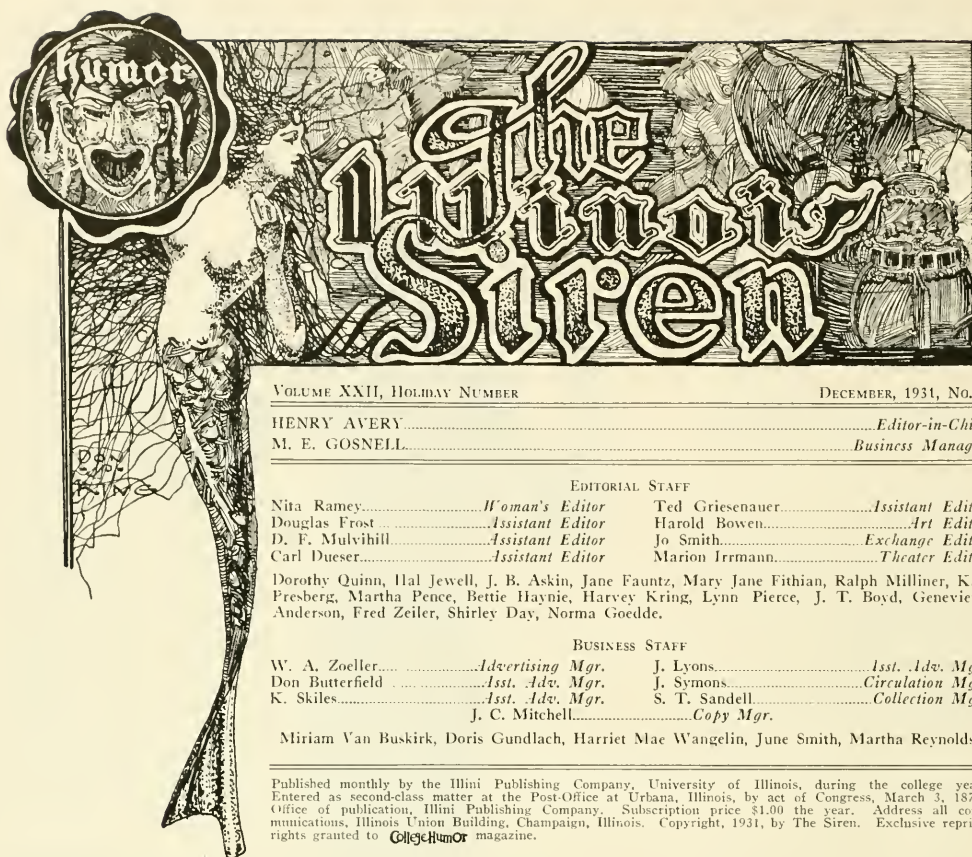 Humor
The
Illinois
Siren
DON
KING
VOLUME XXII, HOLIDAY NUMBER DECEMBER, 1931, No.
HENRY AVERY Editor-in-Chi
M. E. GOSNELL Business Manag
EDITORIAL STAFF
Nita Ramey Woman's Editor Ted Griesenauer Assistant Edit
Douglas Frost Assistant Editor Harold Bowen Art Edit
D. F. Mulvihill Assistant Editor Jo Smith Exchange Edit
Carl Dueser Assistant Editor Marion Irrmann Theater Edit
Dorothy Quinn, Hal Jewell, J. B. Askin, Jane Fauntz, Mary Jane Fithian, Ralph Milliner, K.
Presberg, Martha Pence, Bettie Haynie, Harvey Kring, Lynn Pierce, J. T. Boyd, Genevie
Anderson, Fred Zeiler, Shirley Day, Norma Goedde.
BUSINESS STAFF
W. A. Zoeller Advertising Mgr. J. Lyons Asst. Adv. Mg
Don Butterfield Asst. Adv. Mgr. J. Symons Circulation Mg
K. Skiles Asst. Adv. Mgr. S. T. Sandell Collection Mg
J. C. Mitchell Copy Mgr.
Miriam Van Buskirk, Doris Gundlach, Harriet Mae Wangelin, June Smith, Martha Reynolds
Published monthly by the Illini Publishing Company, University of Illinois, during the college yea
Entered as second-class matter at the Post-Office at Urbana, Illinois, by act of Congress, March 3, 187
Office of publication, Illini Publishing Company. Subscription price $1.00 the year. Address all co
munications, Illinois Union Building, Champaign, Illinois. Copyright, 1931, by The Siren. Exclusive repri
rights granted to College Humor magazine.